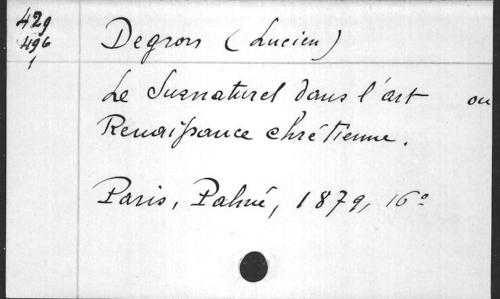 429
496
1
Degron (Lucien)
Le Surnaturel dans l'art ou
Renaissance chrétienne.
Paris, Palmé, 1879, 16°